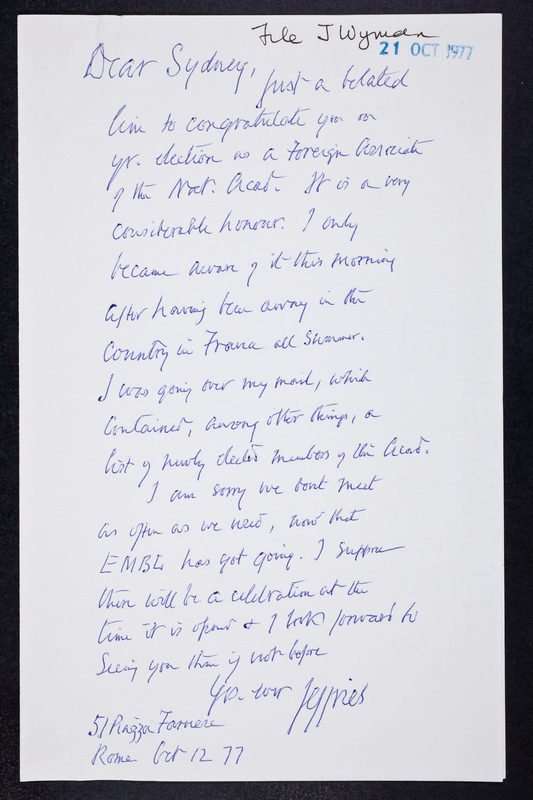 File J Wyman
21 OCT 1977
Dear Sydney,
Just a belated
line to congratulate you on
yr. election as a Foreign Associate
of the Nat. Acad. It is a very
considerable honour. I only
became aware of it this morning
after having been away in the
Country in France all Summer.
I was going over my mail, which
contained, among other things, a
list of newly elected members of the Acad.
I am sorry we don't meet
as often as we used, now that
EMBL has got going. I suppose
there will be a celebration at the
time it is opened & I look forward to
seeing you then if not before
Yrs. ever Jeffries
51 Piazza Farnese
Rome Oct 12 77